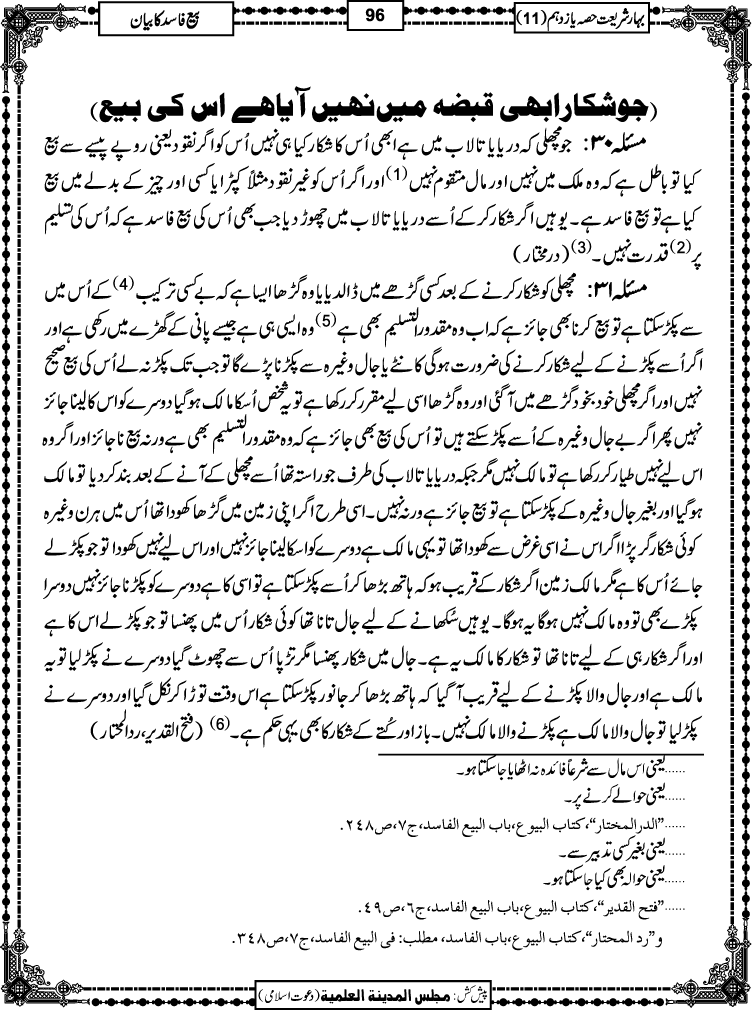 بہار شریعت حصہ یازدہم (11)
96
بیع فاسد کا بیان
(جو شکار ابھی قبضہ میں نہیں آیا ہے اس کی بیع)
مسئلہ ۳۰: جو مچھلی کہ دریا یا تالاب میں ہے ابھی اُس کا شکار کیا ہی نہیں اُس کو اگر نقود یعنی روپے پیسے سے بیع
کیا تو باطل ہے کہ وہ ملک میں نہیں اور مال متقوم نہیں (1) اور اگر اُس کو غیر نقود مثلاً کپڑا یا کسی اور چیز کے بدلے میں بیع
کیا ہے تو بیع فاسد ہے۔ یوہیں اگر شکار کر کے اُسے دریا یا تالاب میں چھوڑ دیا جب بھی اُس کی بیع فاسد ہے کہ اُس کی تسلیم
پر (2) قدرت نہیں۔ (3) (درمختار)
مسئلہ ۳۱: مچھلی کو شکار کرنے کے بعد کسی گڑھے میں ڈال دیا یا وہ گڑھا ایسا ہے کہ بے کسی ترکیب (4) کے اُس میں
سے پکڑ سکتا ہے تو بیع کرنا بھی جائز ہے کہ اب وہ مقدور التسلیم بھی ہے (5) وہ ایسی ہی ہے جیسے پانی کے گھڑے میں رکھی ہے اور
اگر اُسے پکڑنے کے لیے شکار کرنے کی ضرورت ہوگی کانٹے یا جال وغیرہ سے پکڑنا پڑے گا تو جب تک پکڑ نہ لے اُس کی بیع صحیح
نہیں اور اگر مچھلی خود بخود گڑھے میں آگئی اور وہ گڑھا اسی لیے مقرر کر رکھا ہے تو یہ شخص اُسکا مالک ہوگیا دوسرے کو اس کا لینا جائز
نہیں پھر اگر بے جال وغیرہ کے اُسے پکڑ سکتے ہیں تو اُس کی بیع بھی جائز ہے کہ وہ مقدور التسلیم بھی ہے ورنہ بیع ناجائز اور اگر وہ
اس لیے نہیں طیار کر رکھا ہے تو مالک نہیں مگر جبکہ دریا یا تالاب کی طرف جو راستہ تھا اُسے مچھلی کے آنے کے بعد بند کر دیا تو مالک
ہوگیا اور بغیر جال وغیرہ کے پکڑ سکتا ہے تو بیع جائز ہے ورنہ نہیں۔ اسی طرح اگر اپنی زمین میں گڑھا کھودا تھا اُس میں ہرن وغیرہ
کوئی شکار گر پڑا اگر اس نے اسی غرض سے کھودا تھا تو یہی مالک ہے دوسرے کو اسکا لینا جائز نہیں اور اس لیے نہیں کھودا تو جو پکڑ لے
جائے اُس کا ہے مگر مالک زمین اگر شکار کے قریب ہو کہ ہاتھ بڑھا کر اُسے پکڑ سکتا ہے تو اسی کا ہے دوسرے کو پکڑنا جائز نہیں دوسرا
پکڑے بھی تو وہ مالک نہیں ہوگا یہ ہوگا۔ یوہیں سُکھانے کے لیے جال تانا تھا کوئی شکار اُس میں پھنسا تو جو پکڑ لے اس کا ہے
اور اگر شکار ہی کے لیے تانا تھا تو شکار کا مالک یہ ہے۔ جال میں شکار پھنسا مگر تڑپا اُس سے چھوٹ گیا دوسرے نے پکڑ لیا تو یہ
مالک ہے اور جال والا پکڑنے کے لیے قریب آگیا کہ ہاتھ بڑھا کر جانور پکڑ سکتا ہے اس وقت توڑا کر نکل گیا اور دوسرے نے
پکڑ لیا تو جال والا مالک ہے پکڑنے والا مالک نہیں۔ باز اور کُتے کے شکار کا بھی یہی حکم ہے۔ (6) (فتح القدیر، ردالمحتار)
......یعنی اس مال سے شرعاً فائدہ نہ اٹھایا جاسکتا ہو۔
......یعنی حوالے کرنے پر۔
......”الدر المختار“، کتاب البیوع، باب البیع الفاسد، ج۷، ص۲۴۸.
......یعنی بغیر کسی تدبیر سے۔
......یعنی حوالہ بھی کیا جاسکتا ہو۔
......”فتح القدیر“، کتاب البیوع، باب البیع الفاسد، ج۶، ص۴۹.
و”رد المحتار“، کتاب البیوع، باب الفاسد، مطلب: فی البیع الفاسد، ج۷، ص۳۴۸.
پیش کش: مجلس المدینة العلمیة (دعوت اسلامی)